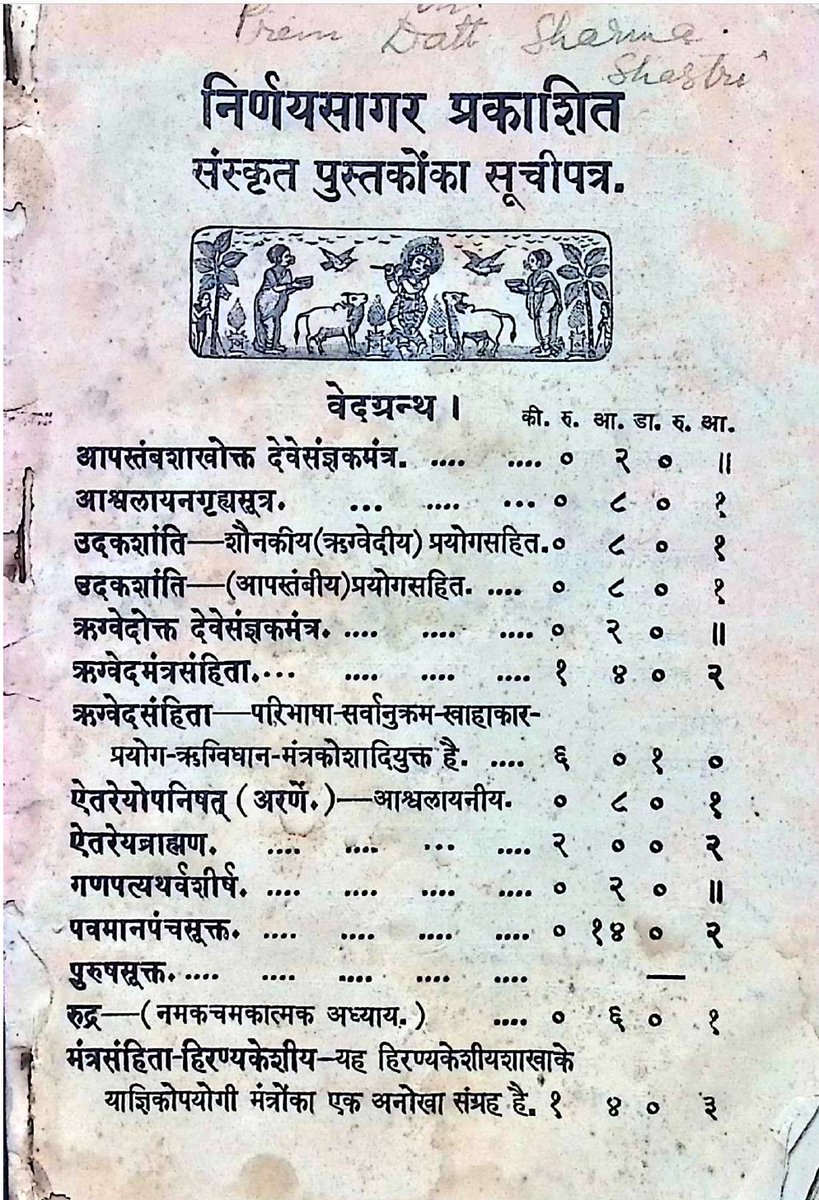 Prem Datt Sharma.
Shastri
निर्णयसागर प्रकाशित
संस्कृत पुस्तकोंका सूचीपत्र.
वेदग्रन्थ।
की. रु. आ. डा. रु. आ.
आपस्तंबशाखोक्त देवेसंज्ञकमंत्र. .... .... ० २ ० ॥
आश्वलायनगृह्यसूत्र. ... .... ... ० ८ ० १
उदकशांति—शौनकीय(ऋग्वेदीय) प्रयोगसहित. ० ८ ० १
उदकशांति—(आपस्तंबीय)प्रयोगसहित. .... ० ८ ० १
ऋग्वेदोक्त देवेसंज्ञकमंत्र. .... .... .... ० २ ० ॥
ऋग्वेदमंत्रसंहिता.... .... .... .... १ ४ ० २
ऋग्वेदसंहिता—परिभाषा-सर्वानुक्रम-स्वाहाकार-
प्रयोग-ऋग्विधान-मंत्रकोशादियुक्त है. .... ६ ० १ ०
ऐतरेयोपनिषत् (अरणें.)—आश्वलायनीय. ० ८ ० १
ऐतरेयब्राह्मण. .... .... ... .... २ ० ० २
गणपत्यथर्वशीर्ष. .... .... .... .... ० २ ० ॥
पवमानपंचसूक्त. .... .... .... .... ० १४ ० २
पुरुषसूक्त. .... .... .... .... .... —
रुद्र—(नमकचमकात्मक अध्याय.) .... ० ६ ० १
मंत्रसंहिता-हिरण्यकेशीय—यह हिरण्यकेशीयशाखाके
याज्ञिकोपयोगी मंत्रोंका एक अनोखा संग्रह है. १ ४ ० ३